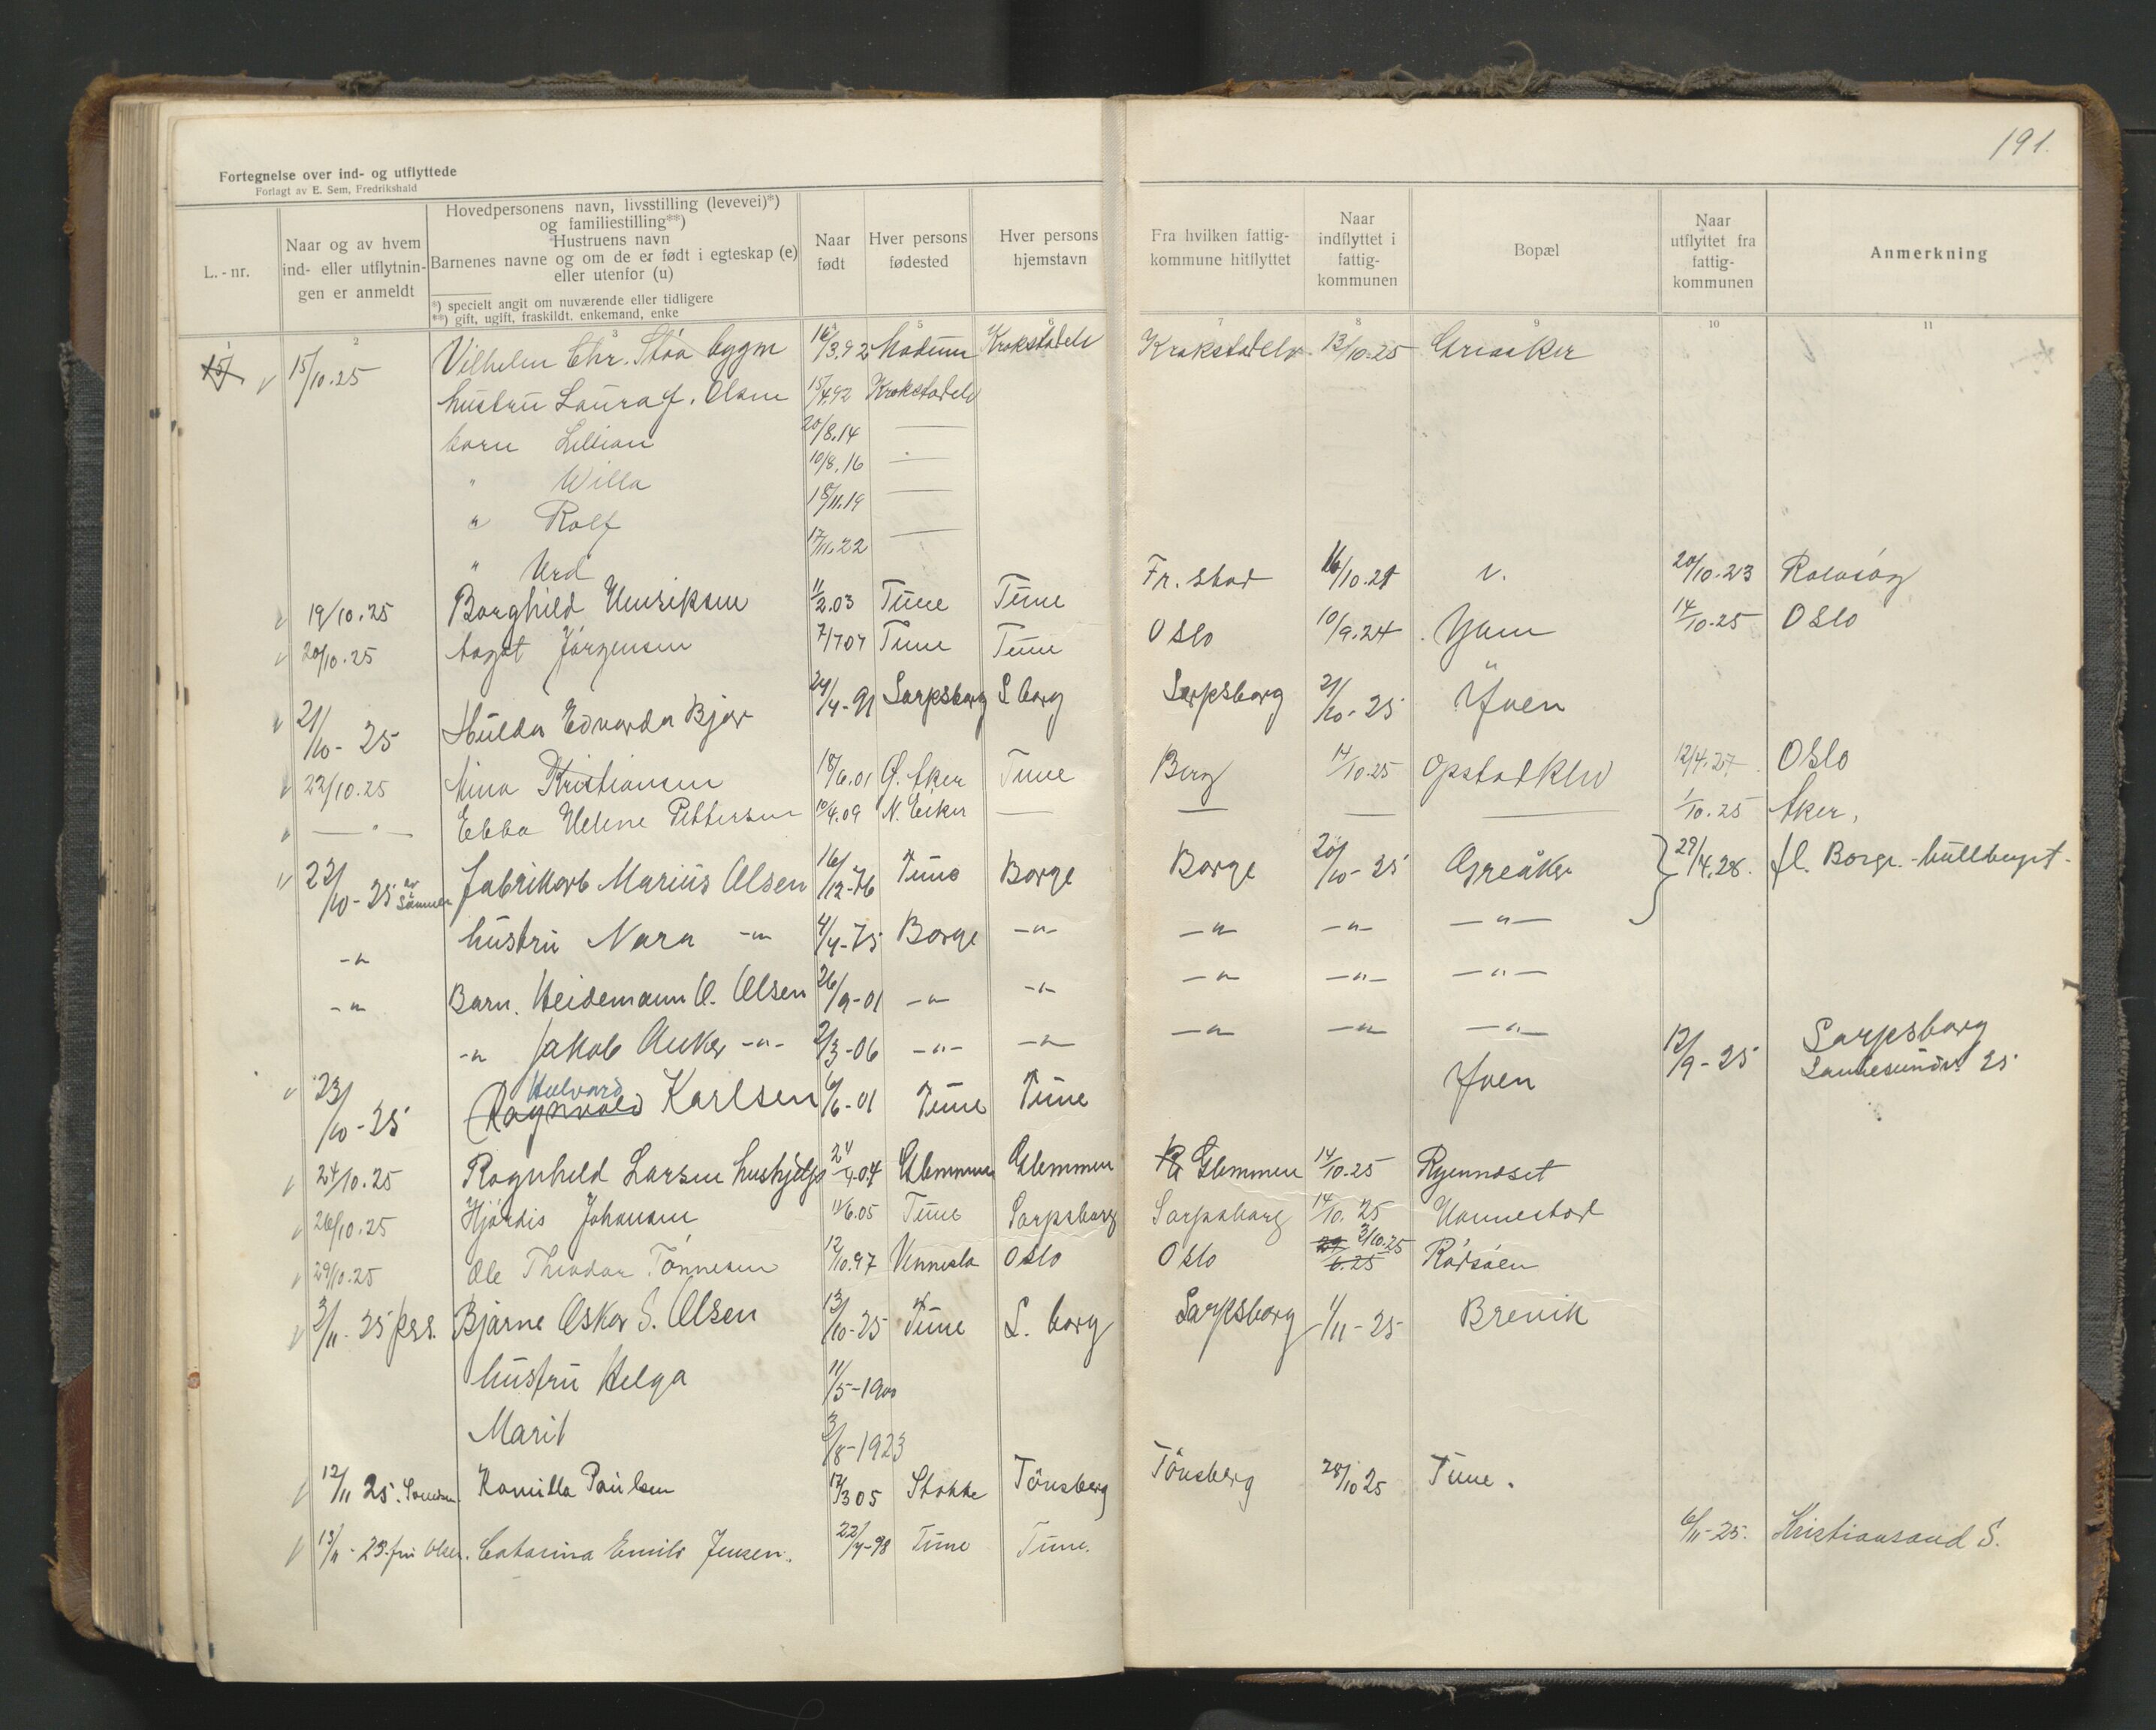 191.
Fortegnelse over ind- og utflyttede
Forlagt av E. Sem, Fredrikshald
L.-nr.
Naar og av hvem ind- eller utflytnin-gen er anmeldt
Hovedpersonens navn, livsstilling (levevei)*)
og familiestilling**)
Hustruens navn
Barnenes navne og om de er født i egteskap (e)
eller utenfor (u)
*) specielt angit om nuværende eller tidligere
**) gift, ugift, fraskildt, enkemand, enke
Naar født
Hver persons fødested
Hver persons hjemstavn
Fra hvilken fattig-kommune hitflyttet
Naar indflyttet i fattig-kommunen
Bopæl
Naar utflyttet fra fattig-kommunen
Anmerkning
2 3 5 6 7 8 9 10 11
15/10.25 Vilhelm Chr. Stöa bygm 16/3.92 Modum Krokstadelv Krokstadelv 13/10.25 Greaaker
hustru Laura f. Olsen 15/4.92 Krokstadelv
barn Lillian 20/8.14 —
" Willa 10/8.16 —
" Rolf 18/11.19 —
" Urd 17/11.22 —
19/10.25 Borghild Henriksen 11/2.03 Tune Tune Fr.stad 16/10.21 v. 20/10.23 Rolvsöy
20/10.25 Aagot Jörgensen 7/1 07 Tune Tune Oslo 10/9.24 Yven 14/10.25 Oslo
21/10-25 Hulda Edvarda Bjar 24/4-91 Sarpsborg S borg Sarpsborg 21/10-25 Yven
22/10.25 Mina Kristiansen 18/6.01 Ø. Aker Tune Berg 14/10.25 Opstadfeld 12/4.27 Oslo
— " — Ebba Helene Pettersen 10/4.09 N. Eiker — — — — 1/10.25 Aker.
22/10-25 av samme fabrikarb Marius Olsen 16/12-76 Tune Borge Borge 20/10-25 Greåker } 29/4.28. fl. Borge.
-"- hustru Nara -"- 4/4-75 Borge -"- -"- -"- -"-
-"- Barn. Heidemann O. Olsen 26/9-01 -"- -"- -"- -"- -"-
-"- Jakob Anker -"- 2/3-06 -"- -"- -"- -"- -"-
23/10-25 Ragnvald Halvard Karlsen 6/6-01 Tune Tune Yven 12/9-25 Sarpsborg
Sannesundsv 25
24/10.25 Ragnhild Larsen hushjelp 24/9.04 Glemmen Glemmen Glemmen 14/10.25 Ryennoset
26/10.25 Hjördis Johansen 11/6.05 Tune Sarpsborg Sarpsborg 14/10.25 Hannestad
29/10.25 Ole Theodor Tönnesen 12/10.97 Vennesla Oslo Oslo 29/6.25 3/10.25 Rödsöen
3/11-25 pss. Bjarne Oskar S. Olsen 13/10-25 Tune S. borg Sarpsborg 1/11-25 Brevik
hustru Helga 11/5-1900
Marit 3/8-1923
12/11 25. Kamilla Paulsen 17/3 05 Stokke Tönsberg Tönsberg 28/10 25 Tune.
13/11-25. fru Olsen. Catarina Emilie Jensen. 22/4-98 Tune Tune. 6/11-25. Kristiansand S.